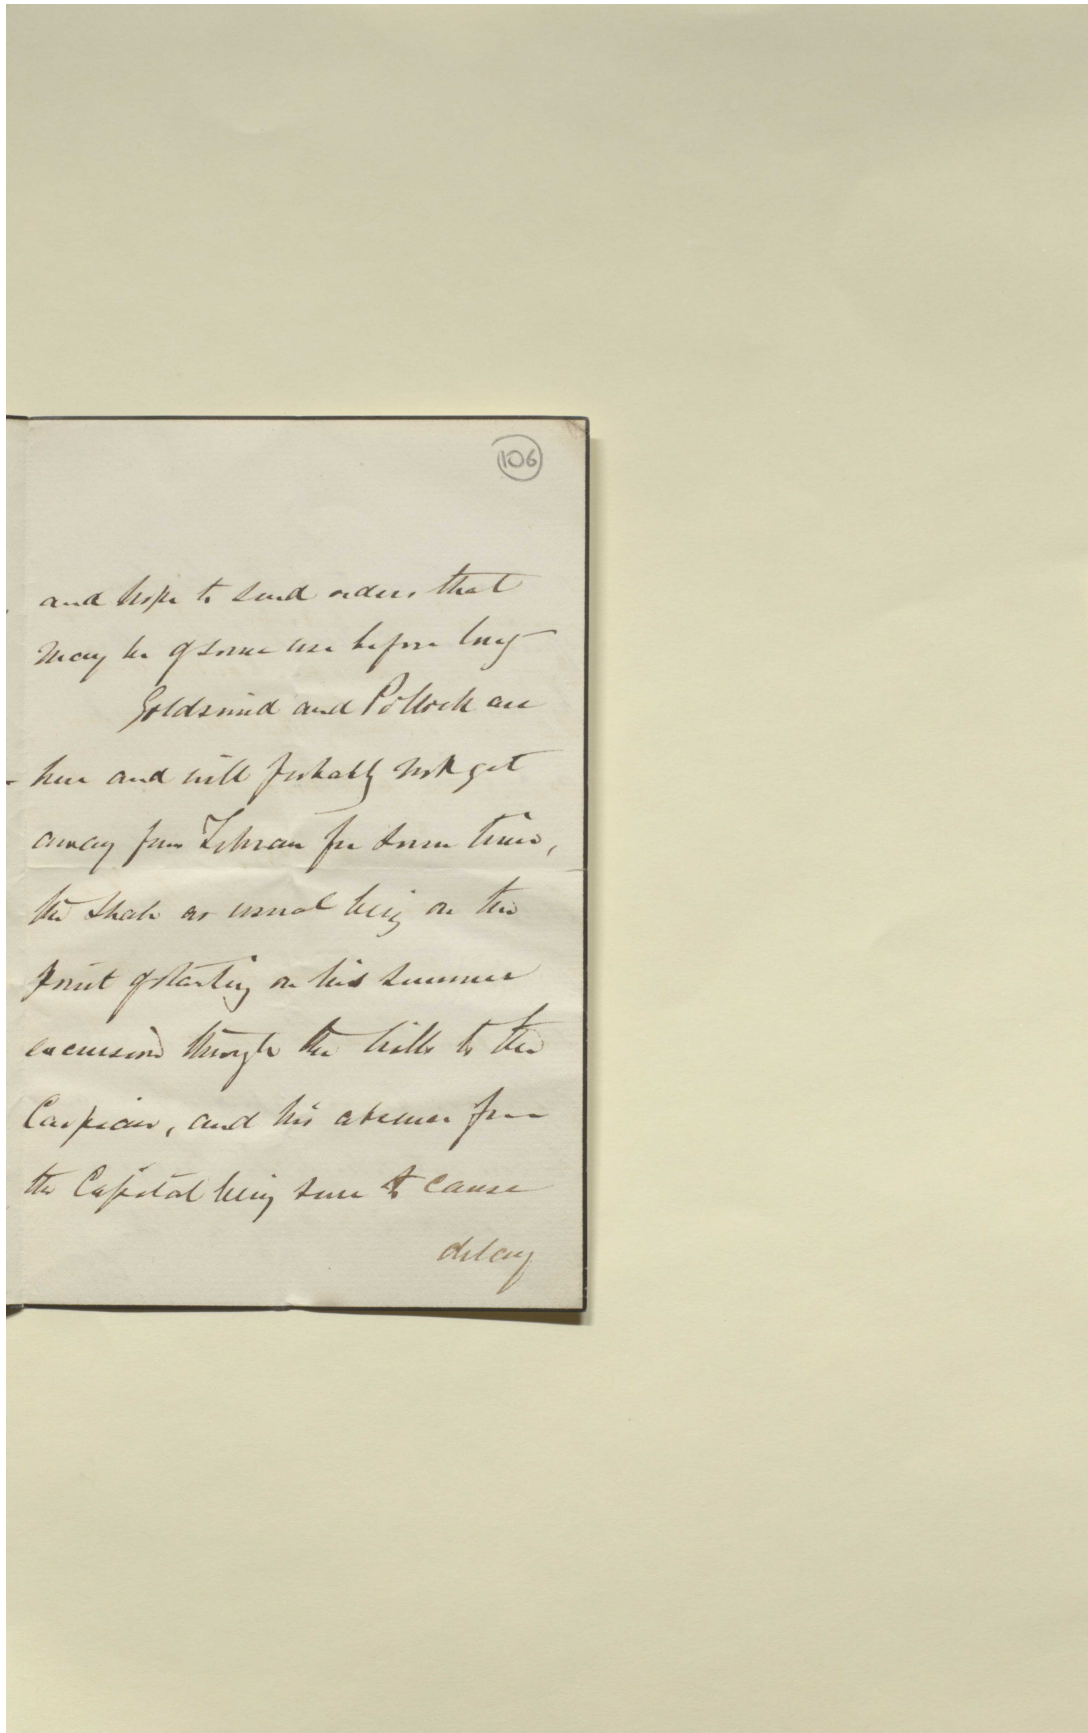 106
and hope to send orders that
may be of some use before long
Goldsmid and Pollock are
here and will probably not get
away from Tehran for some time,
the Shah as usual being on the
point of starting on his summer
excursion through the hills to the
Caspian, and his absence from
the Capital being sure to cause
delay